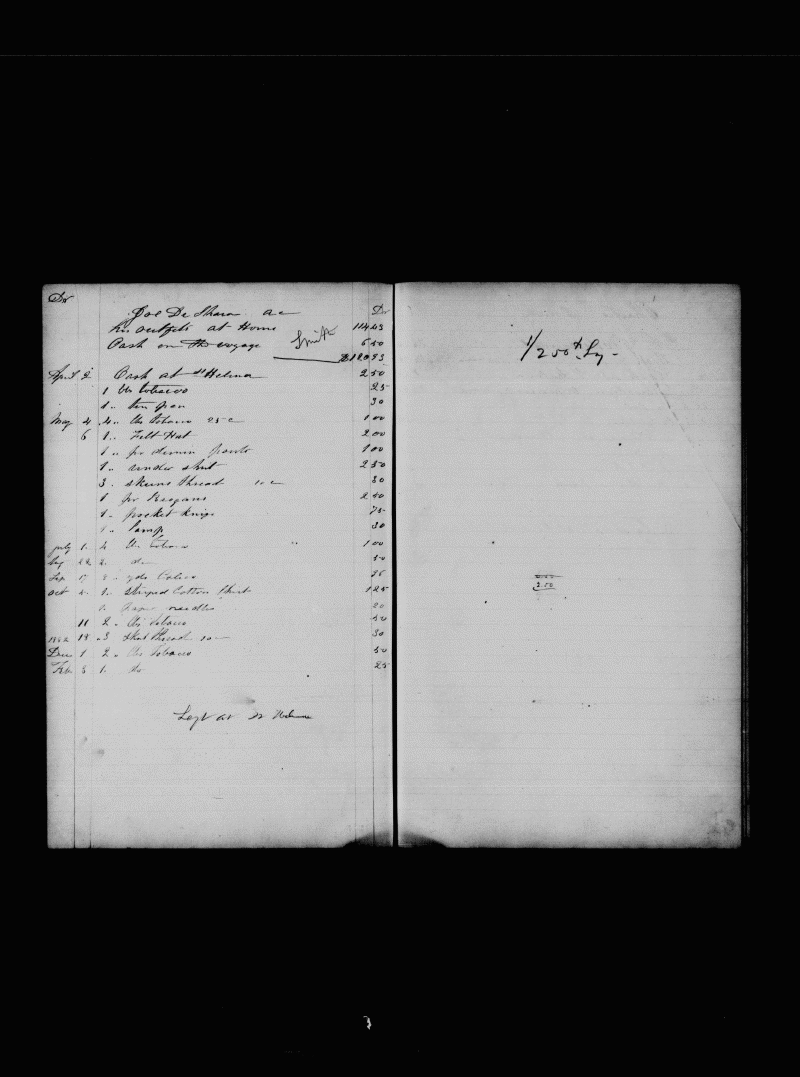 Dr
Joe De Shara a c Dr
his outfits at Home 114 43
Cash on the voyage Smith 6 50
$120 93
April 2 Cash at St Helena 2 50
1 lbs tobacco 25
1 " tin pan 30
May 4 4 " lbs tobacco 25 c 1 00
6 1 " Felt Hat 2 00
1 " pr denim pants 1 00
1 " under shirt 2 50
3 " skeins thread 10 c 30
1 pr Brogans 2 40
1 " pocket knife 75
1 " lamp 30
July 1 4 lbs tobacco " 1 00
22 2 " do 50
Sep 17 yds Calico
Oct 4 1 " striped Cotton Shirt 1 25
1 needles 20
11 2 " lbs tobacco 50
18 " 3 thread 10 c 30
Dec 1 2 " lbs tobacco 50
Feb 3 1 " do 25
Left at St Helena
1/250th Ly -
2.50